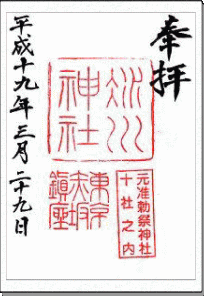 奉拝
氷川
神社
元准勅祭神社
十社之内
東京
赤坂
鎮座
平成十九年三月二十九日